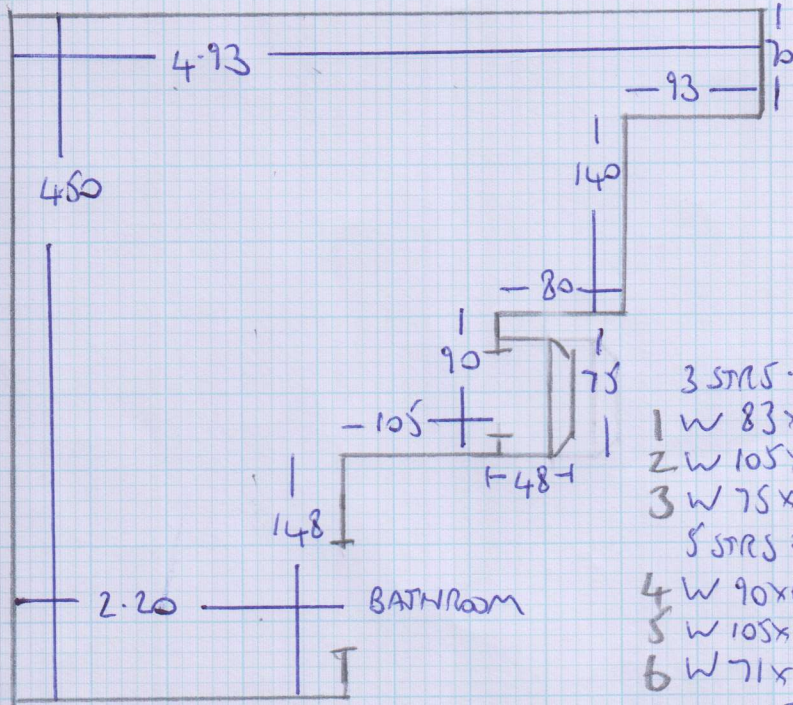 4.93
70
93
450
140
80
90
75
105
48
148
2.20
BATHROOM
3 STRS
1 W 83x
2 W 105x
3 W 75x
5 STRS
4 W 90x
5 W 105x
6 W 71x